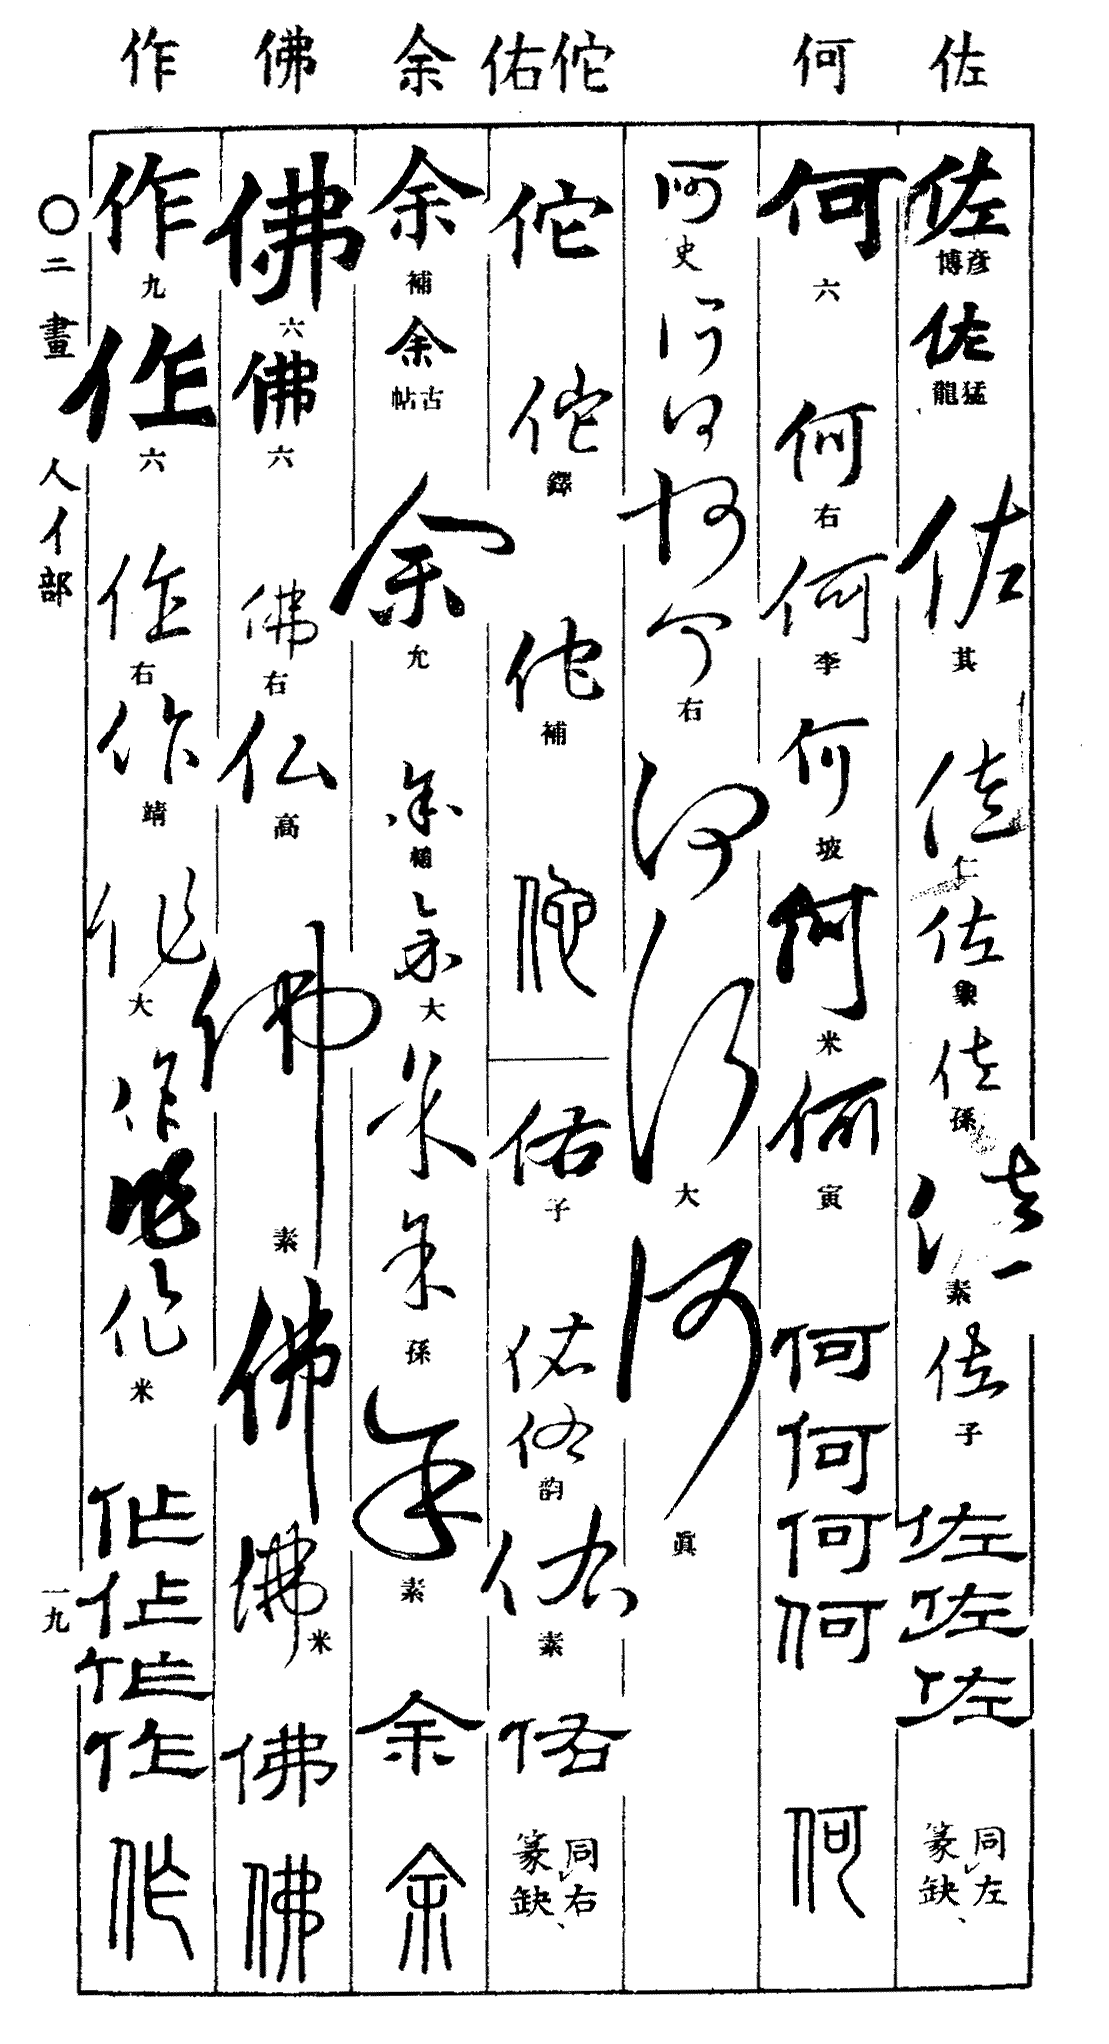 佐 何 佗佑 余 佛 作
佐 彦博 佐 猛龍 佐 其 佐 仁 佐 象 佐 孫 佐 素 佐 子 佐 佐 佐 同左 篆缺、
何 六 何 右 何 李 何 坡 何 米 何 寅 何 何 何 何 何
何 史 何 何 何 何 右 何 何 大 何 眞
佗 佗 鐸 佗 補 佗
佑 子 佑 佑 韵 佑 素 佑 同右 篆缺、
余 補 余 古帖 余 允 余 余 大 余 余 孫 余 素 余 余
佛 六 佛 六 佛 右 仏 高 佛 素 佛 佛 米 佛 佛
作 九 作 六 作 右 作 靖 作 大 作 作 作 米 作 作 作 作 作
〇二畫 人亻部
一九